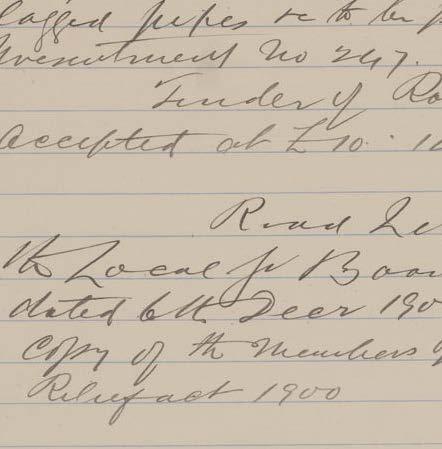 lagged pipes &c to be p
Presentment No 247.
Tender of Ro
Accepted at £10. 10
Read Le
the Local Gr Boar
dated 6th Decr 190
Copy of the Members
Relief act 1900